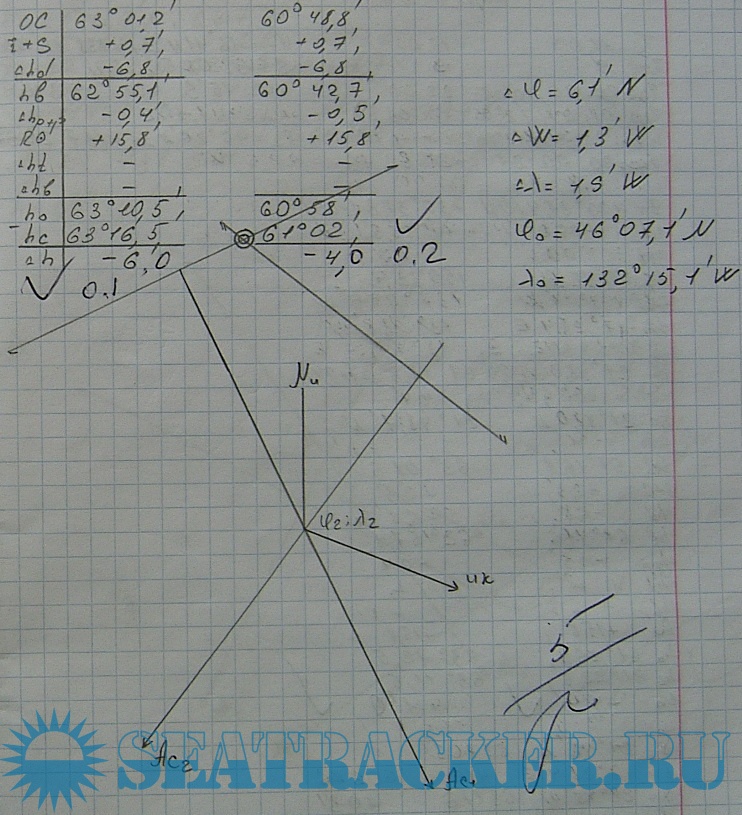 OC 63° 01,2' 60° 48,8'
i+S +0,7' +0,7'
Δhd -6,8' -6,8'
hв 62° 55,1' 60° 42,7'
-0,4' -0,5'
+15,8' +15,8'
Δht - -
Δhв - -
ho 63° 10,5' 60° 58'
hc 63° 16,5' 61° 02'
Δh -6,0 -4,0
0.1 0.2
Δφ = 6,1' N
ΔW = 1,3' W
Δλ = 1,9' W
φo = 46° 07,1' N
λo = 132° 15,1' W
Nи
φ2; λ2
ик
Ac2
Ac1
5
SEATRACKER.RU